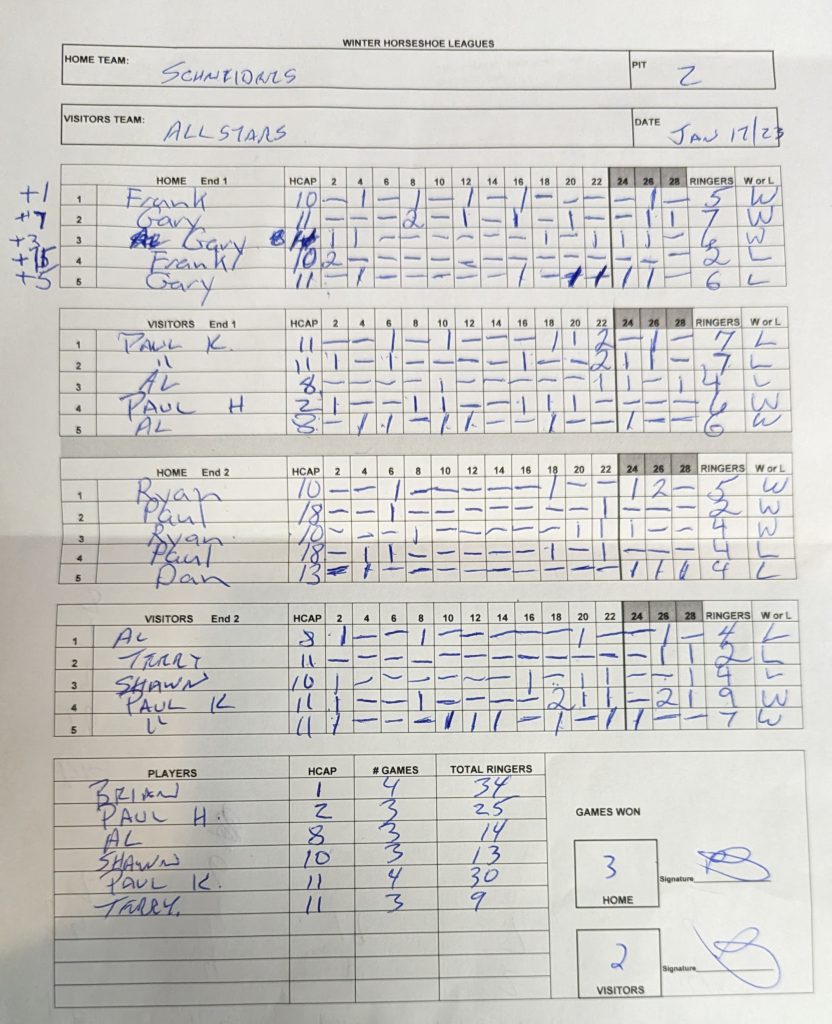 WINTER HORSESHOE LEAGUES
HOME TEAM: SCHNEIDRES PIT 2
VISITORS TEAM: ALLSTARS DATE JAN 17/23
HOME End 1 HCAP 2 4 6 8 10 12 14 16 18 20 22 24 26 28 RINGERS W or L
+1 1 Frank 10 — 1 — 1 — 1 — 1 — — — — 1 — 5 W
+7 2 Gary 11 — — — 2 — 1 — 1 — 1 — — 1 1 7 W
+3 3 Gary 1 1 — — — — — — 1 — 1 1 1 — 6 W
4 Frank 10 2 — — — — — — — — — — — — — 2 L
+5 5 Gary 11 — 1 — — — — — 1 — 1 1 1 1 — 6 L
VISITORS End 1 HCAP 2 4 6 8 10 12 14 16 18 20 22 24 26 28 RINGERS W or L
1 PAUL K. 11 — — 1 — 1 — — — 1 1 2 — 1 — 7 L
2 " 11 1 — 1 — — — — 1 — — 2 1 1 — 7 L
3 AL 8 — — — — 1 — — — — — 1 1 — 1 4 L
4 PAUL H 2 1 — — 1 1 — — 1 1 1 — — — — 6 W
5 AL 8 — 1 1 — 1 1 — — 1 — — 1 — — 6 W
HOME End 2 HCAP 2 4 6 8 10 12 14 16 18 20 22 24 26 28 RINGERS W or L
1 Ryan 10 — — 1 — — — — — 1 — — 1 2 — 5 W
2 Paul 18 — — 1 — — — — — — — 1 — — — 2 W
3 Ryan 10 — — — 1 — — — — — 1 1 1 — — 4 W
4 Paul 18 — 1 1 — — — — — 1 — 1 — — — 4 L
5 Dan 13 — 1 — — — — — — — — — 1 1 1 4 L
VISITORS End 2 HCAP 2 4 6 8 10 12 14 16 18 20 22 24 26 28 RINGERS W or L
1 AL 8 1 — — 1 — — — — — 1 — — 1 — 4 L
2 TERRY 11 — — — — — — — — — — — — 1 1 2 L
3 SHAWN 10 1 — — — — — — 1 — 1 1 — — — 4 L
4 PAUL K 11 1 — — 1 — — — — 2 1 1 — 2 1 9 W
5 " 11 1 — — — 1 1 1 — 1 — 1 1 — — 7 W
PLAYERS HCAP # GAMES TOTAL RINGERS
BRIAN 1 4 34
PAUL H. 2 3 25
AL 8 3 14
SHAWN 10 3 13
PAUL K. 11 4 30
TERRY. 11 3 9
GAMES WON
3 Signature
HOME
2 Signature
VISITORS